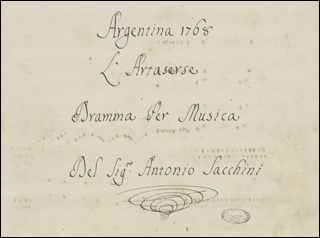 Argentina 1768
L'Artaserse
Dramma Per Musica
Del Sig.r Antonio Sacchini